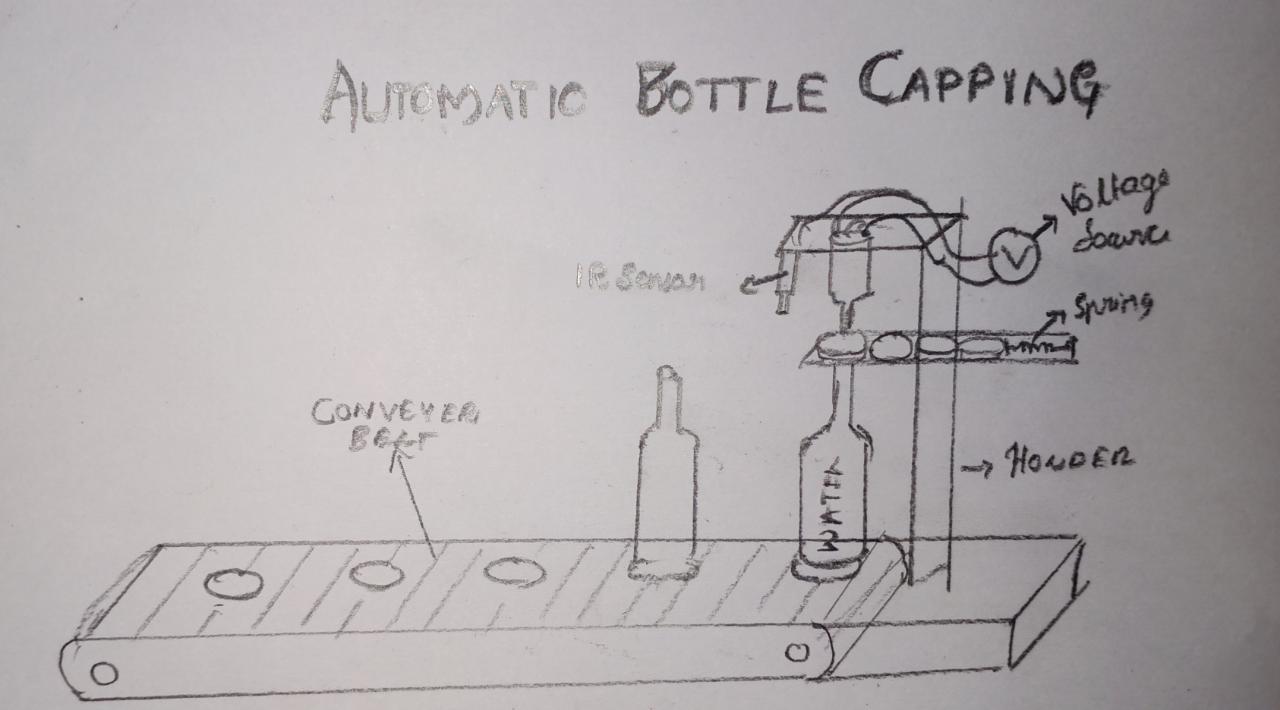 AUTOMATIC BOTTLE CAPPING
Voltage
Source
IR Sensor
V
Spring
CONVEYER
BELT
HONDER
WATER